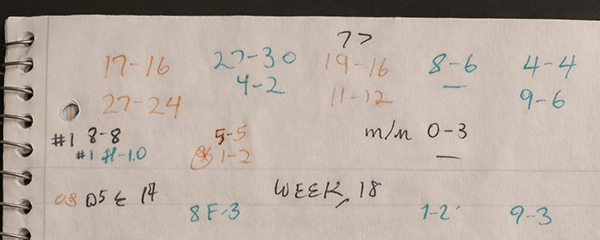 77
17-16 27-30 19-16 8-6 4-4
4-2
27-24 11-12 9-6
#1 8-8 5-5 m/m 0-3
#1 1-2
14 WEEK, 18
8F-3 1-2 9-3